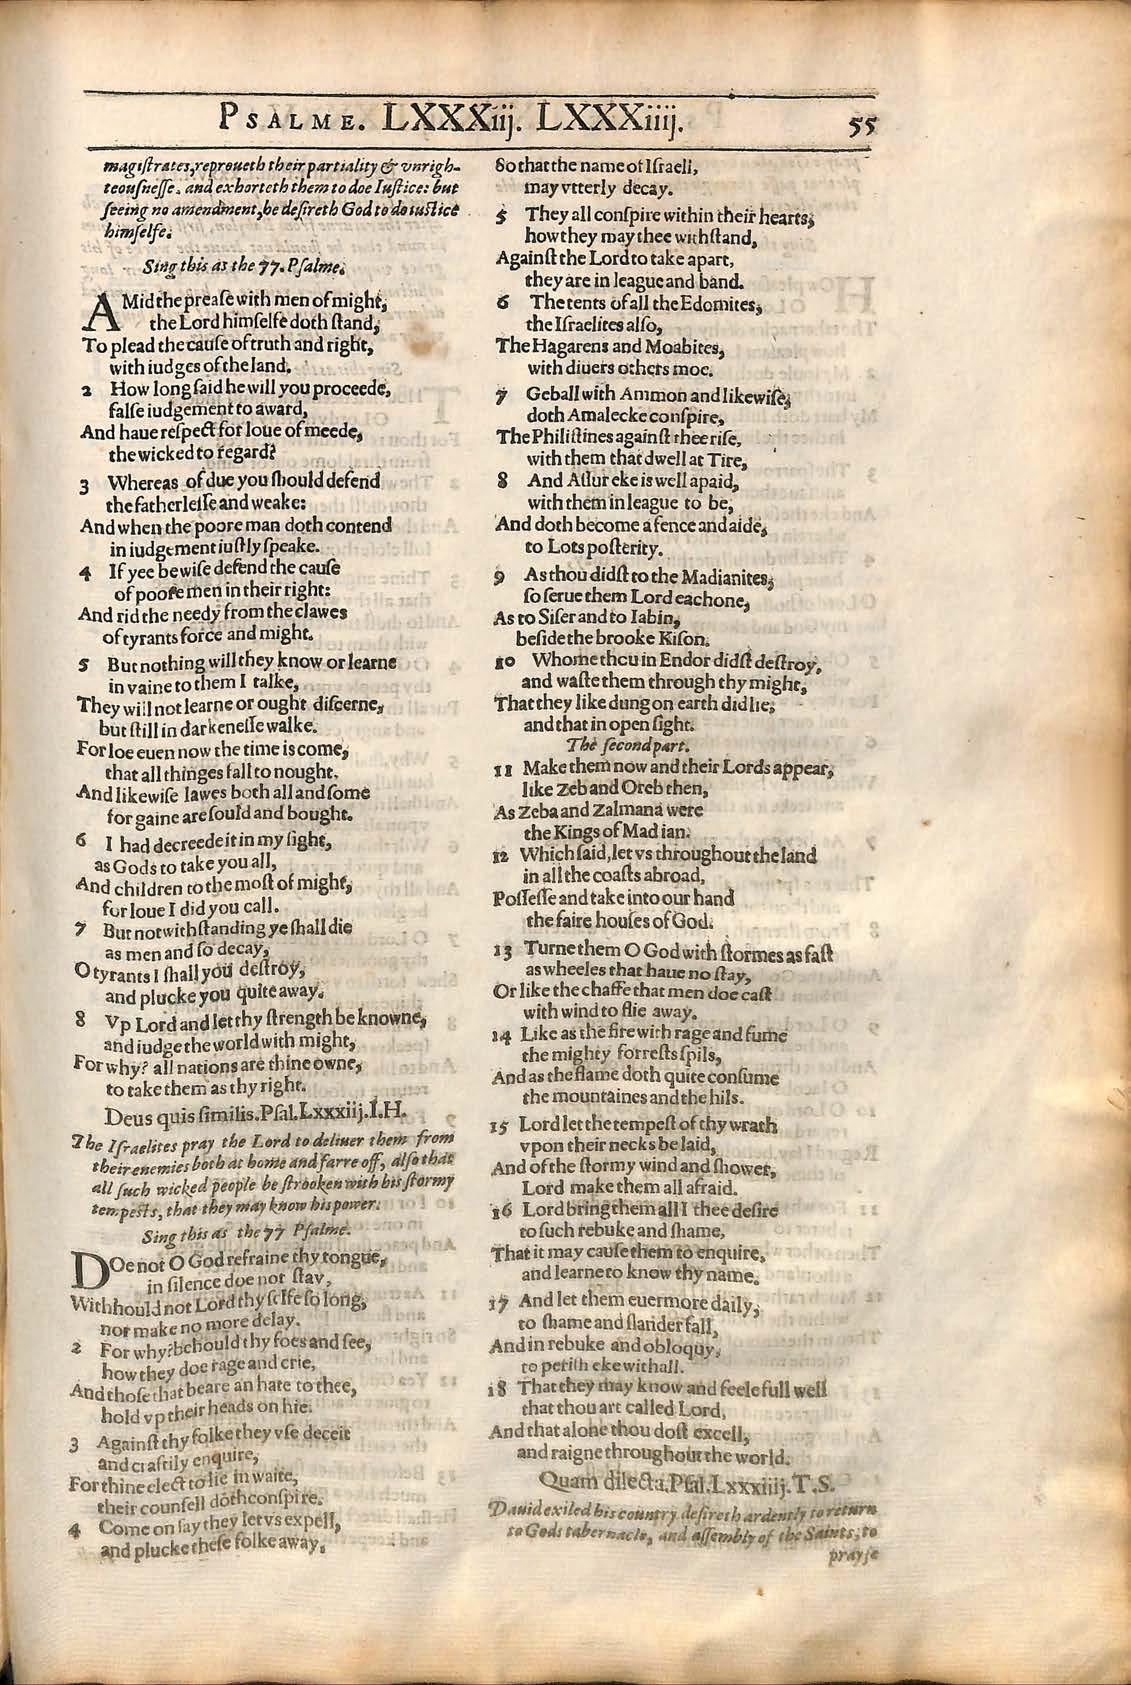 PSALME. LXXXiij. LXXXiiij. 55
magistrates, reproueth their partiality & vnrigh-
teousnesse. and exhorteth them to doe Iustice: but
seeing no amendment, he desireth God to do iustice
himselfe.
Sing this as the 77. Psalme.
AMid the prease with men of might,
the Lord himselfe doth stand,
To plead the cause of truth and right,
with iudges of the land.
2 How long said he will you proceede,
false iudgement to award,
And haue respect for loue of meede,
the wicked to regard?
3 Whereas of due you should defend
the fatherlesse and weake:
And when the poore man doth contend
in iudgement iustly speake.
4 If yee be wise defend the cause
of poore men in their right:
And rid the needy from the clawes
of tyrants force and might.
5 But nothing will they know or learne
in vaine to them I talke,
They will not learne or ought discerne,
but still in darkenesse walke.
For loe euen now the time is come,
that all thinges fall to nought.
And likewise lawes both all and some
for gaine are sould and bought.
6 I had decreede it in my sight,
as Gods to take you all,
And children to the most of might,
for loue I did you call.
7 But notwithstanding ye shall die
as men and so decay,
O tyrants I shall you destroy,
and plucke you quite away.
8 Vp Lord and let thy strength be knowne,
and iudge the world with might,
For why? all nations are thine owne,
to take them as thy right.
Deus quis similis. Psal. Lxxxiij. I. H.
The Israelites pray the Lord to deliuer them from
their enemies both at home and farre off, also that
all such wicked people be strooken with his stormy
tempests, that they may know his power.
Sing this as the 77 Psalme.
DOe not O God refraine thy tongue,
in silence doe not stay,
Withhould not Lord thy selfe so long,
nor make no more delay.
2 For why? behould thy foes and see,
how they doe rage and crie,
And those that beare an hate to thee,
hold vp their heads on hie.
3 Against thy folke they vse deceit
and craftily enquire,
For thine elect to lie in waite,
their counsell doth conspire.
4 Come on say they let vs expell,
and plucke these folke away,
So that the name of Israell,
may vtterly decay.
5 They all conspire within their hearts,
how they may thee withstand,
Against the Lord to take a part,
they are in league and band.
6 The tents of all the Edomites,
the Israelites also,
The Hagarens and Moabites,
with diuers others moe.
7 Geball with Ammon and likewise,
doth Amalecke conspire,
The Philistines against thee rise,
with them that dwell at Tire,
8 And Assur eke is well apaid,
with them in league to be,
And doth become a fence and aide,
to Lots posterity.
9 As thou didst to the Madianites,
so serue them Lord eachone,
As to Siser and to Iabin,
beside the brooke Kison.
10 Whome thou in Endor didst destroy,
and waste them through thy might,
That they like dung on earth did lie,
and that in open sight.
The second part.
11 Make them now and their Lords appear,
like Zeb and Oreb then,
As Zeba and Zalmana were
the Kings of Madian.
12 Which said, let vs throughout the land
in all the coasts abroad,
Possesse and take into our hand
the faire houses of God.
13 Turne them O God with stormes as fast
as wheeles that haue no stay,
Or like the chaffe that men doe cast
with wind to flie away.
14 Like as the fire with rage and fume
the mighty forrests spils,
And as the flame doth quite consume
the mountaines and the hils.
15 Lord let the tempest of thy wrath
vpon their necks be laid,
And of the stormy wind and shower,
Lord make them all afraid.
16 Lord bring them all I thee desire
to such rebuke and shame,
That it may cause them to enquire,
and learne to know thy name.
17 And let them euermore daily,
to shame and slander fall,
And in rebuke and obloquy,
to perish eke withall.
18 That they may know and feele full well
that thou art called Lord,
And that alone thou dost excell,
and raigne throughout the world.
Quam dilecta. Psal. Lxxxiiij. T. S.
Dauid exiled his country desireth ardently to return
to Gods tabernacle, and assembly of the Saints, to
prayse